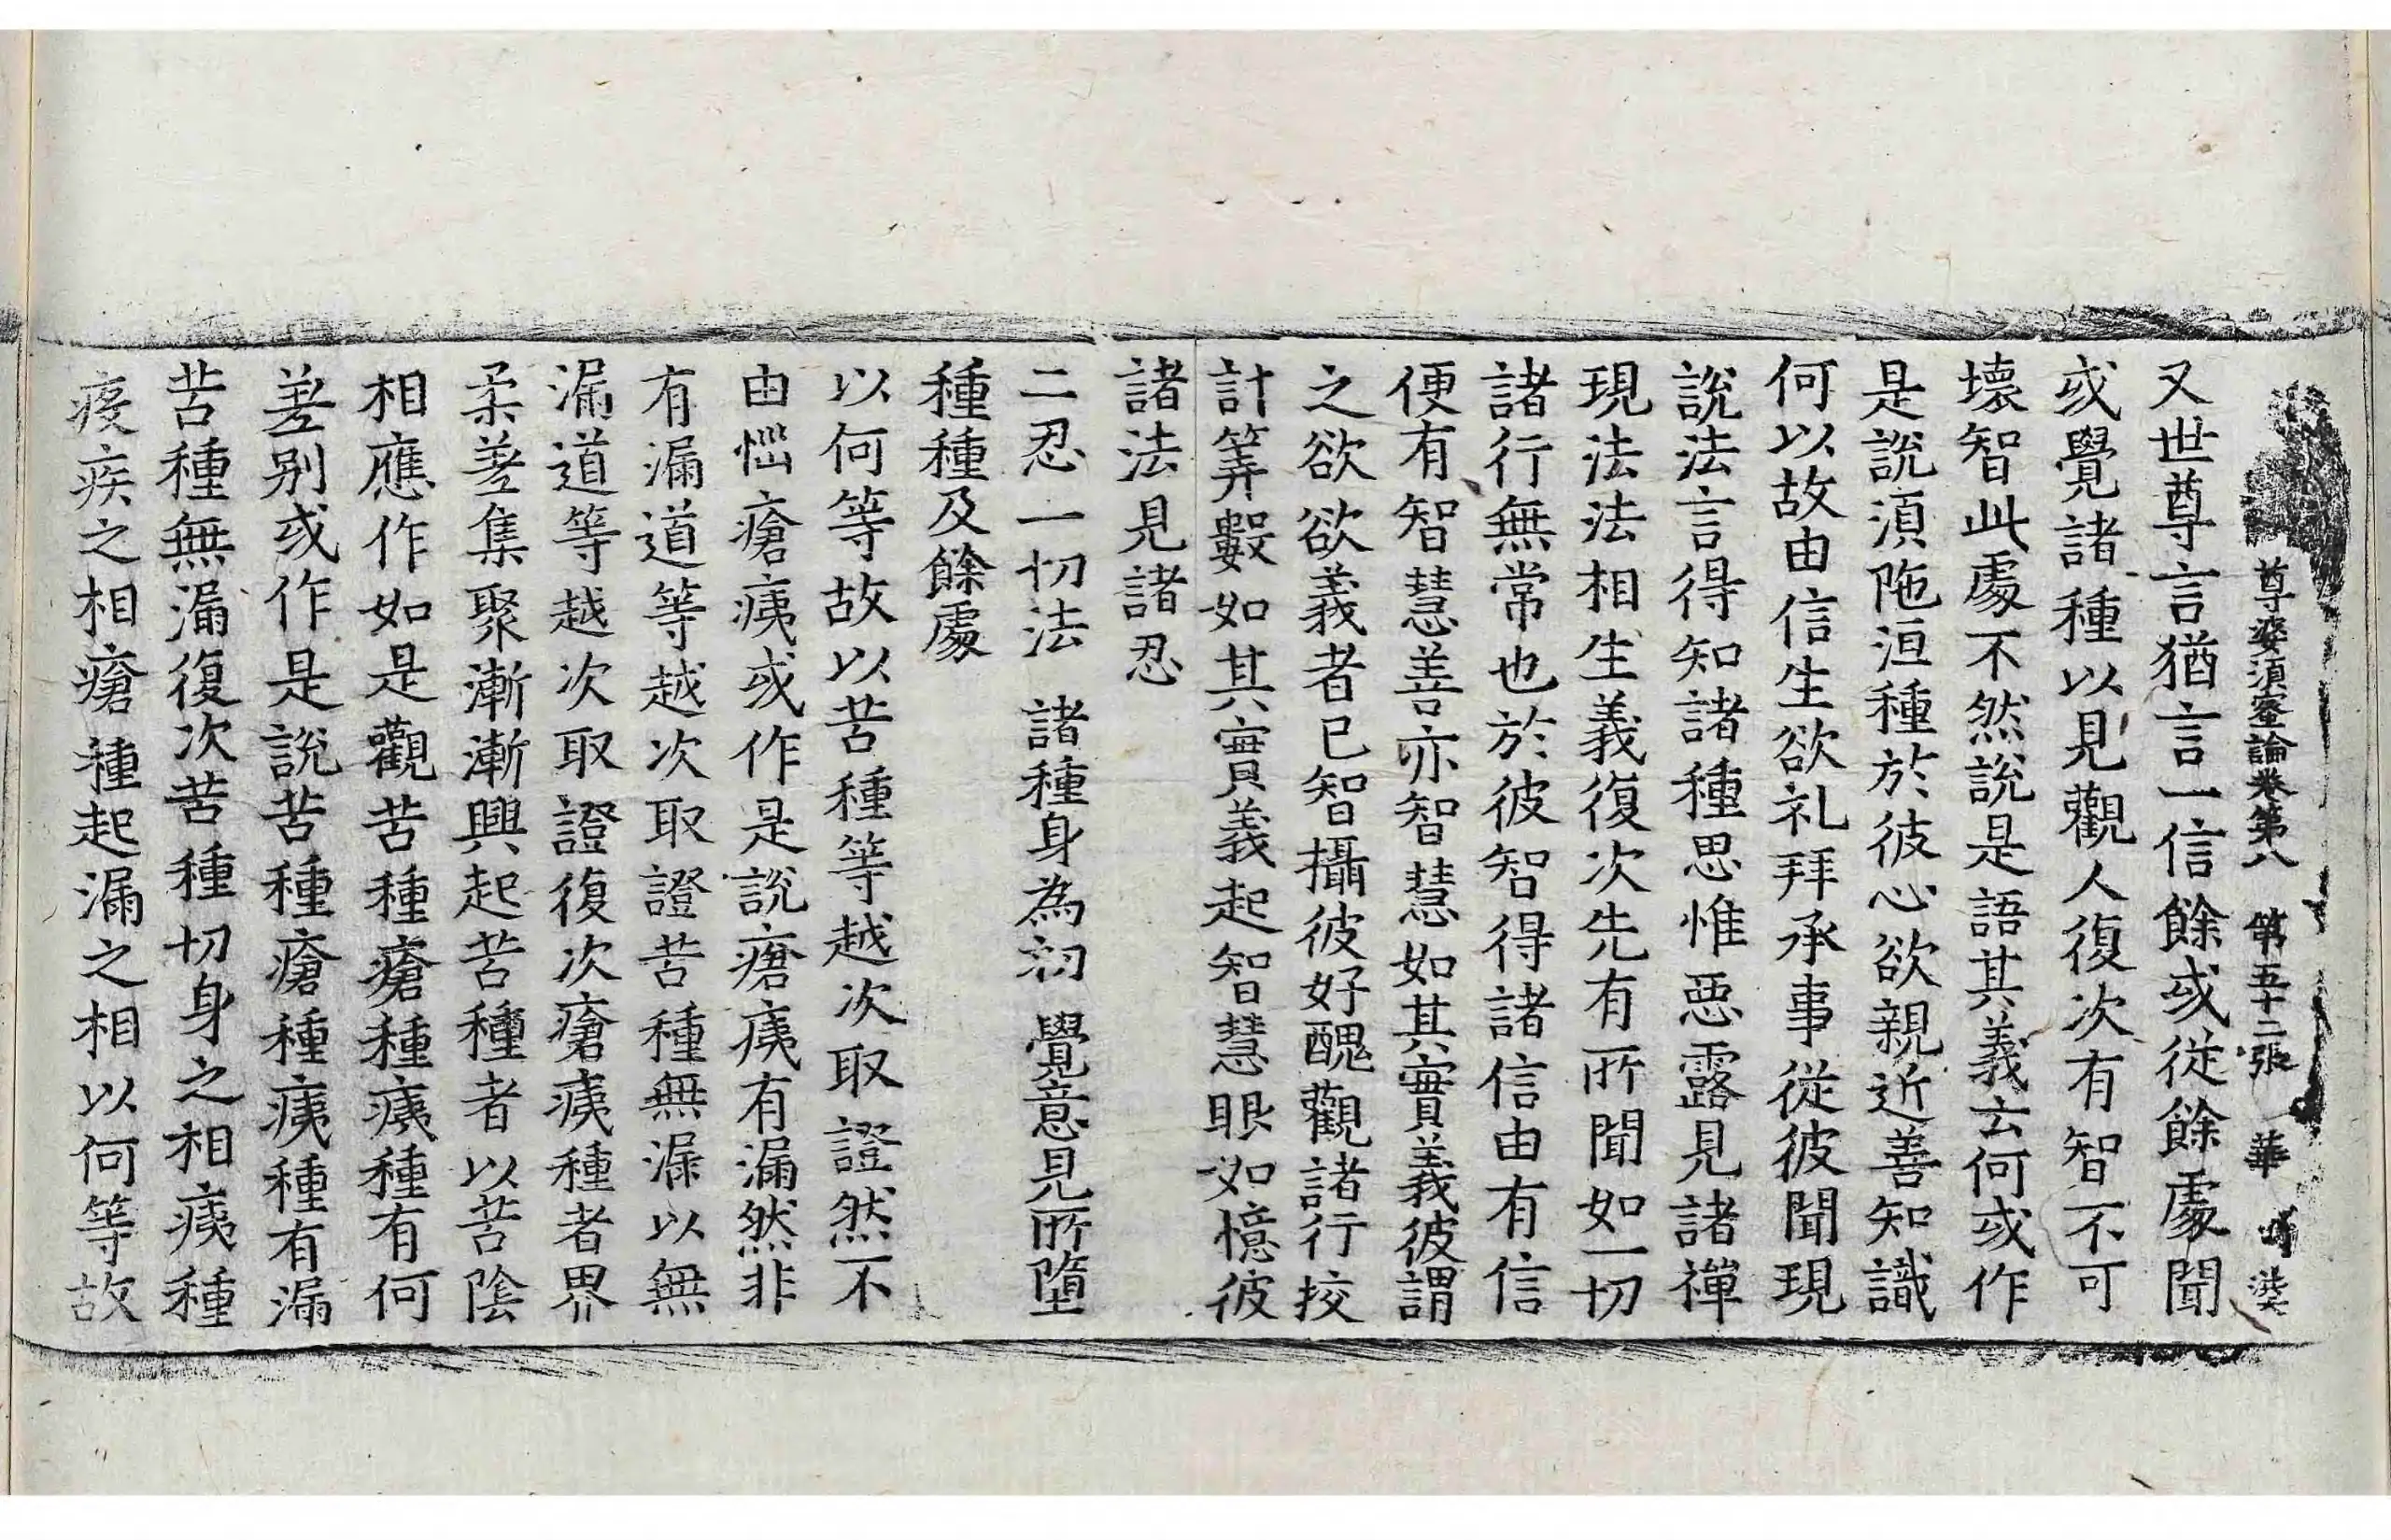 尊婆須蜜論卷第八 第五十二張 華
又世尊言猶言一信餘或從餘處聞
或覺諸種以見觀人復次有智不可
壞智此處不然說是語其義云何或作
是說湏陁洹種於彼心欲親近善知識
何以故由信生欲礼拜承事從彼聞現
說法言得知諸種思惟惡露見諸禪
現法法相生義復次先有所聞如一切
諸行無常也於彼智得諸信由有信
便有智慧善亦智慧如其實義彼謂
之欲欲義者已智攝彼好醜觀諸行挍
計筭數如其實義起智慧眼如憶彼
諸法見諸忍
二忍一切法 諸種身為初 覺意見所墮
種種及餘處
以何等故以苦種等越次取證然不
由惱瘡痍或作是說瘡痍有漏然非
有漏道等越次取證苦種無漏以無
漏道等越次取證復次瘡痍種者界
柔差集聚漸漸興起苦種者以苦陰
相應作如是觀苦種瘡種痍種有何
差别或作是說苦種瘡種痍種有漏
苦種無漏復次苦種切身之相痍種
疫疾之相瘡種起漏之相以何等故